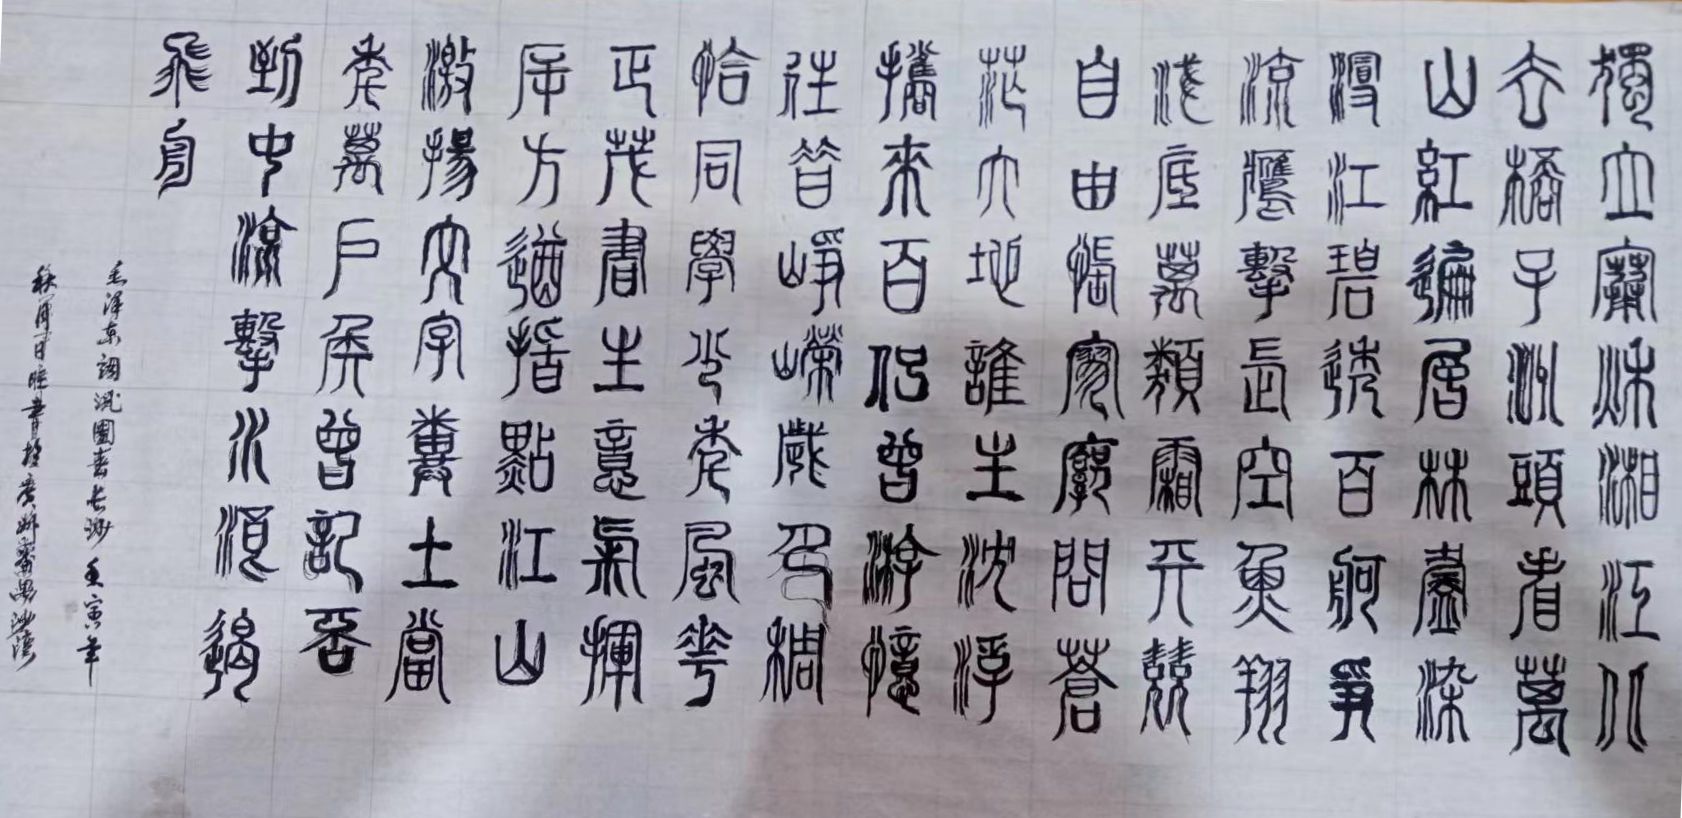 獨立寒秋湘江北
去橘子洲頭看萬
山紅遍層林盡染
漫江碧透百舸爭
流鷹擊長空魚翔
淺底萬類霜天競
自由悵寥廓問蒼
茫大地誰主沈浮
攜來百侶曾游憶
往昔崢嶸歲月稠
恰同學少年風華
正茂書生意氣揮
斥方遒指點江山
激揚文字糞土當
年萬戶侯曾記否
到中流擊水浪遏
飛舟
毛澤東詞沁園春長沙壬寅年
秋書於廣州番禺沙灣